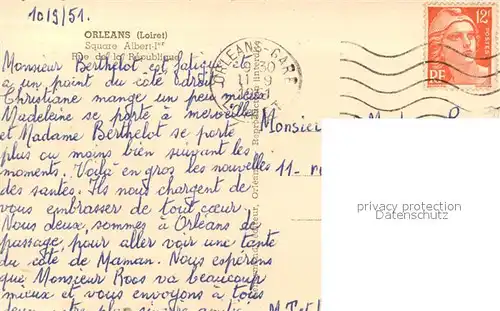 10/9/51.
ORLEANS (Loiret)
Square Albert-Ier
Rue de la République
Monsieur Berthelot est fatigué
a un point du côté cardit
Christiane mange un peu mieux
Madeleine se porte à merveille
et Madame Berthelot se porte
plus ou moins bien suivant les
moments. Voilà en gros les nouvelles
des santés. Ils nous chargent de
vous embrasser de tout cœur
Nous deux, sommes à Orléans de
passage, pour aller voir une tante
du côté de Maman. Nous espérons
que Monsieur Roos va beaucoup
mieux et vous envoyons à tous
notre plus sincère
ORLEANS-GARE
11-9
12F
POSTES
RF
Reproduction interdite
Monsieur
11-
privacy protection
Datenschutz